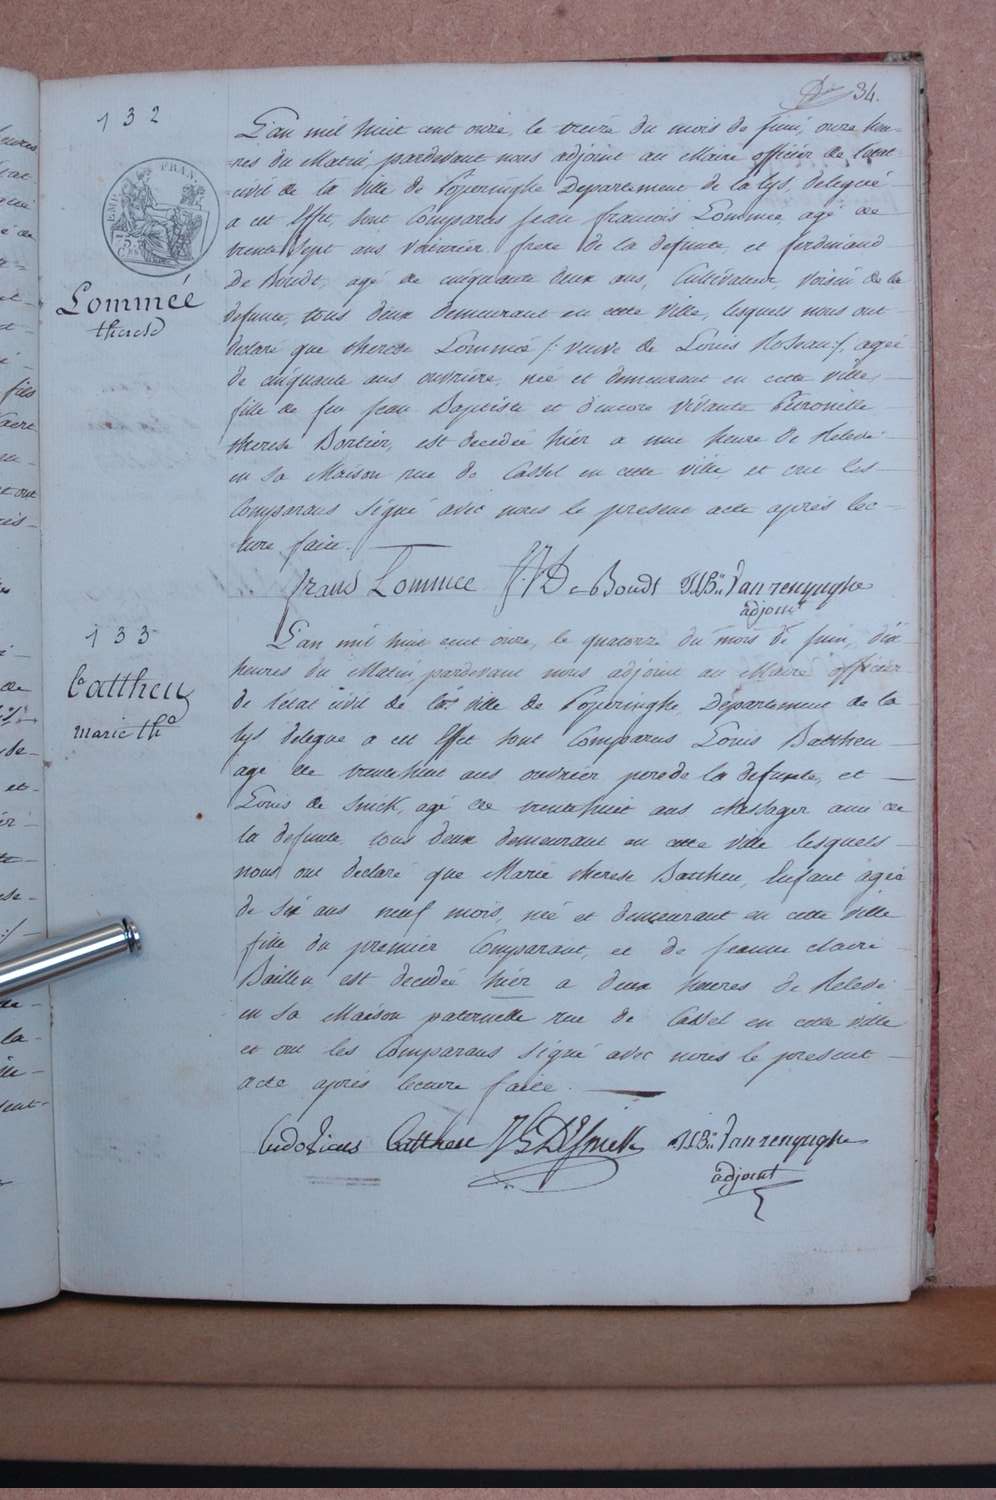 34.
132
EMP. FRAN.
75 C.es
Lommeé
therese
L'an mil huit cent onze, le treize du mois de juni, onze heu-
=res du Matin, pardevant nous adjoint au Maire officier de l'etat
civil de la ville de Poperinghe Departement de la Lys, delegué
a cet Effet, sont Comparus jean francois Lommee, agé de
trente sept ans Voiturier frere de la defunte, et ferdinand
De Boudt, agé de cinquante deux ans, Cultivateur, voisin de la
defunte, tous deux demeurant en cette ville, lesquels nous ont
declaré que therese Lommeé /: veuve de Louis :/, agée
de cinquante ans ouvriere, née et demeurant en cette ville,
fille de feu jean Baptiste et d'encore vivante Petronille
therese Bortier, est decedée hier a une heure de Relevé
en sa Maison rue de Cassel en cette ville, et ont les
Comparans signé avec nous le present acte après lec-
ture faite.
frans Lommee F:J: De Boudt J:J:B:n Vanrenynghe
adjoint
133
Battheu
marie th.e
L'an mil huit cent onze, le quatorze du mois de juin, dix
heures du Matin, pardevant nous adjoint au Maire officier
de l'etat civil de la ville de Poperinghe, Departement de la
Lys delegué a cet Effet sont Comparus Louis Battheu
agé de trentehuit ans ouvrier pere de la defunte, et
Louis de Snick, agé de trentehuit ans Messager ami de
la defunte, tous deux demeurant en cette ville lesquels
nous ont declaré que Marie therese Battheu, Enfant agée
de six ans neuf mois, née et demeurant en cette ville
fille du premier Comparant, et de jeanne claire
Bailleu est decedée hier a deux heures de Relevé
en sa Maison paternelle rue de Cassel en cette ville
et ont les Comparans signé avec nous le present
acte après lecture faite.
Ludovicus Battheu J:J:B:n Vanrenynghe
adjoint